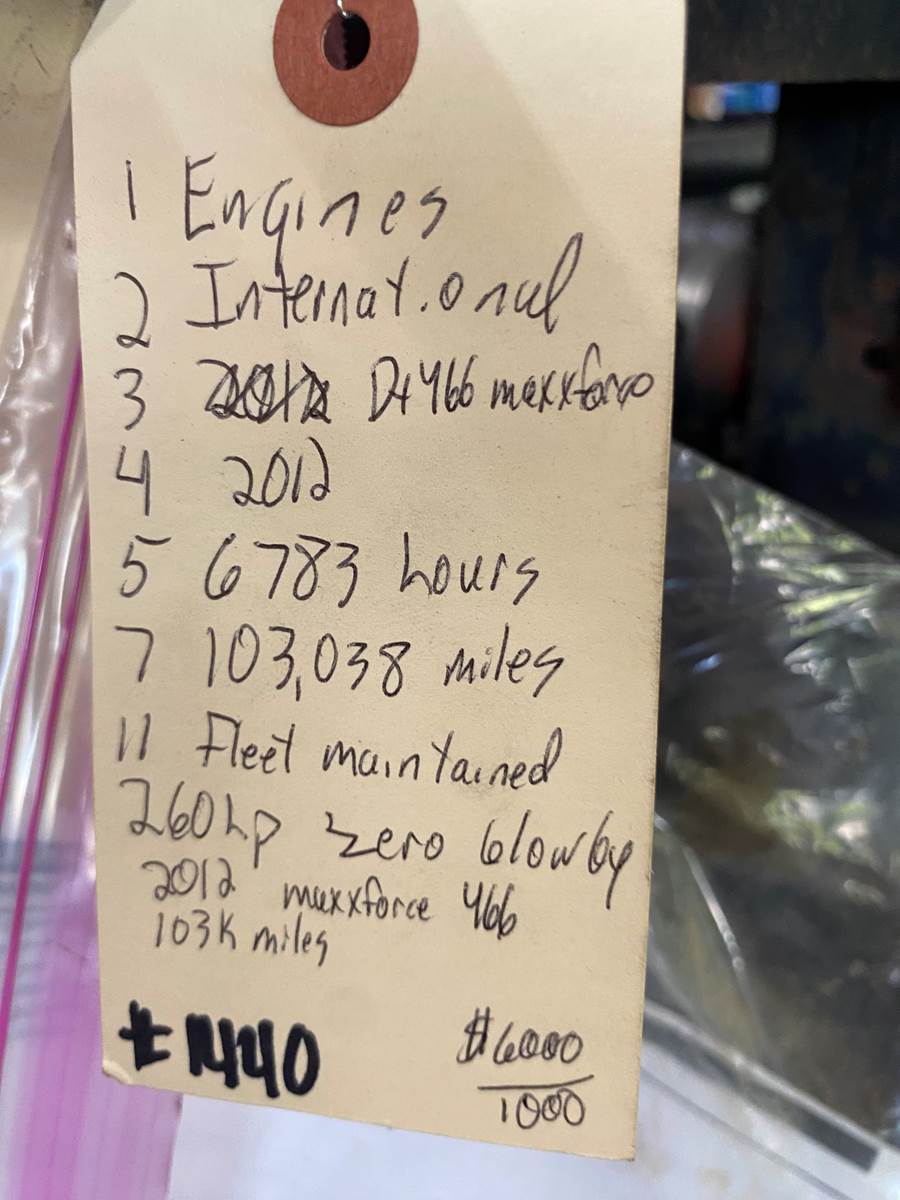 1 Engines
2 International
3 2012 Dt466 maxxforce
4 2012
5 6783 hours
7 103,038 miles
11 Fleet maintained
260hp zero blowby
2012 maxxforce 466
103K miles
#1440
$6000
1000